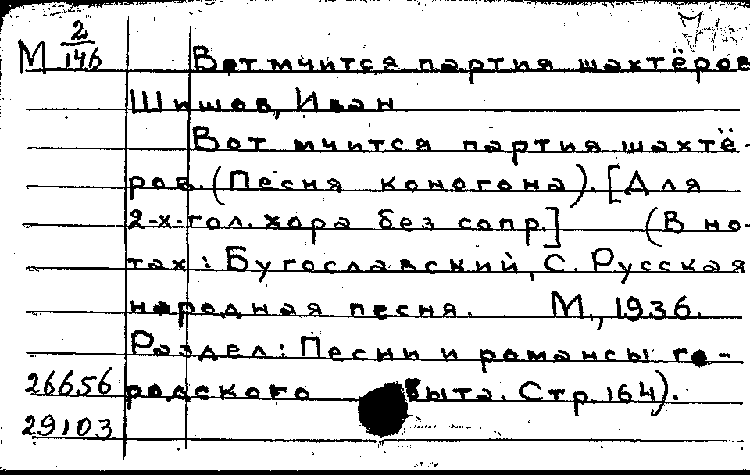 М 2/146 Вот мчится партия шахтёров
Шишов, Иван
Вот мчится партия шахтё-
ров. (Песня коногона). [Для
2-х-гол. хора без сопр.] (В но-
тах: Бугославский, С. Русская
народная песня. М., 1936.
Раздел: Песни и романсы го-
26656 родского быта. Стр. 164).
29103